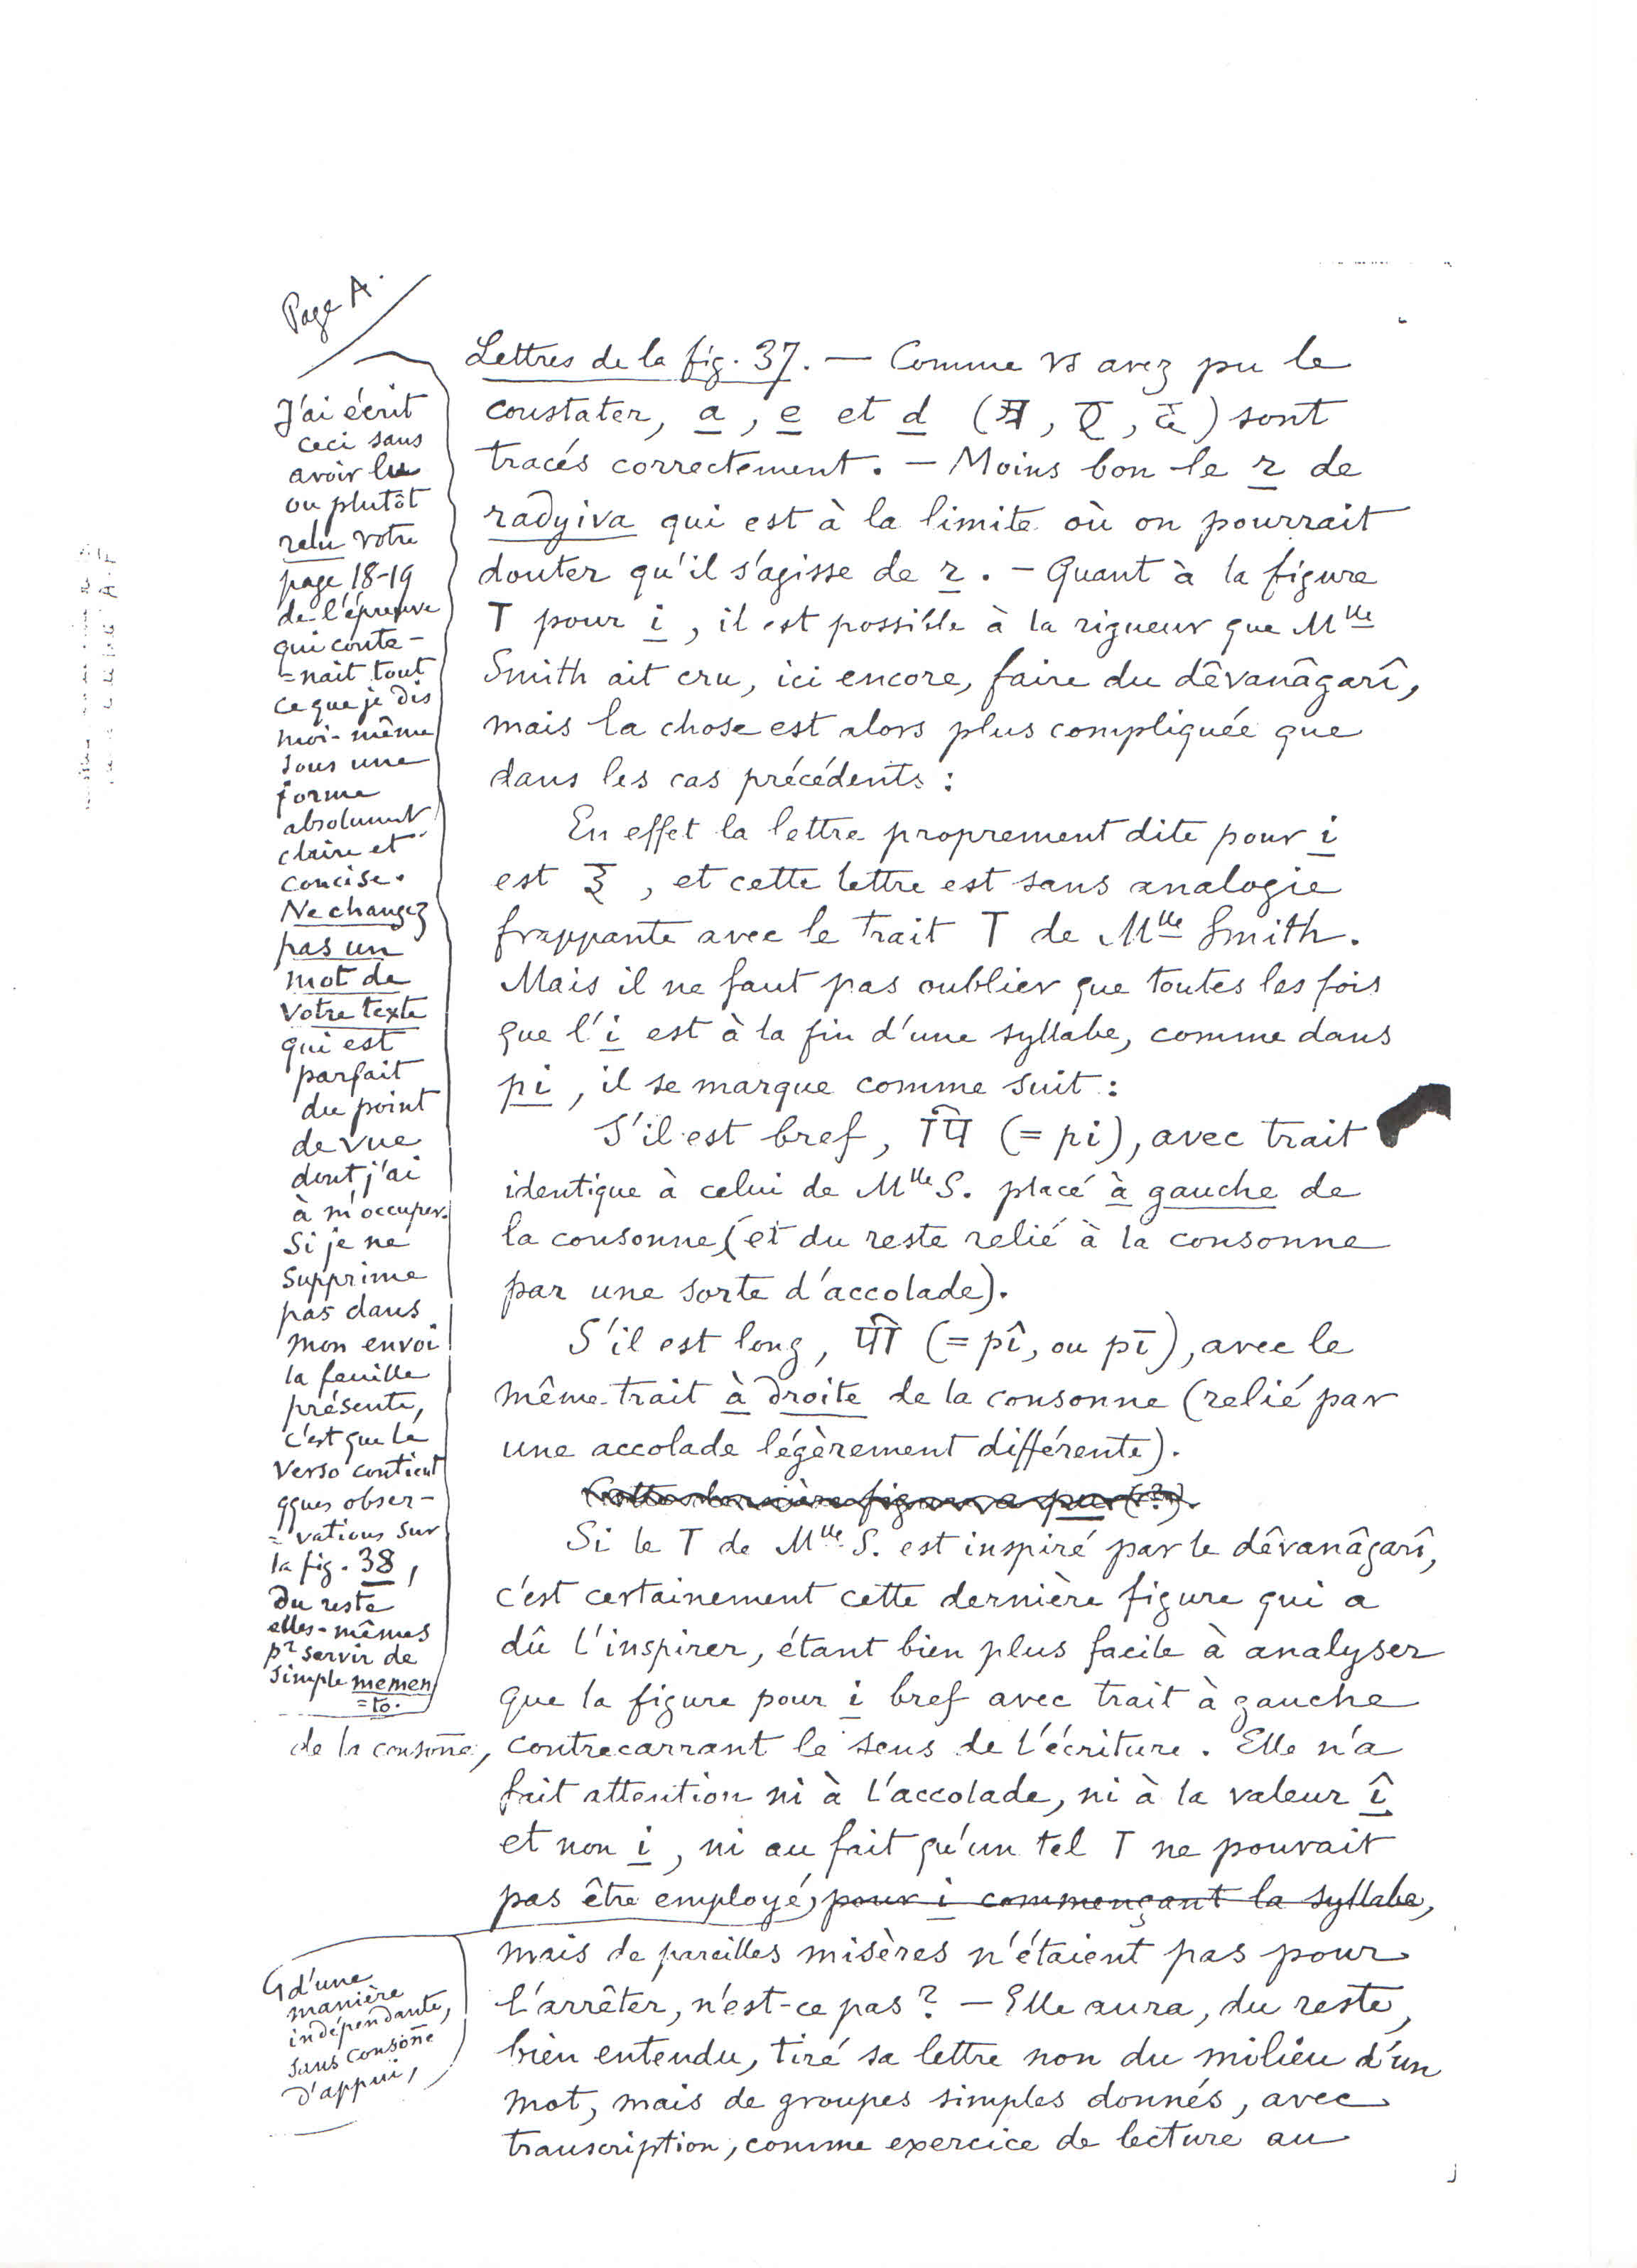 Page A.
Lettres de la fig. 37. — Comme vs avez pu le
constater, a, e et d (अ, ए, द) sont
tracés correctement. — Moins bon le r de
radyiva qui est à la limite où on pourrait
douter qu'il s'agisse de r. — Quant à la figure
T pour i, il est possible à la rigueur que Mlle
Smith ait cru, ici encore, faire du dêvanâgarî,
mais la chose est alors plus compliquée que
dans les cas précédents :
En effet la lettre proprement dite pour i
est इ, et cette lettre est sans analogie
frappante avec le trait T de Mlle Smith.
Mais il ne faut pas oublier que toutes les fois
que l'i est à la fin d'une syllabe, comme dans
pi, il se marque comme suit :
S'il est bref, पि (= pi), avec trait
identique à celui de Mlle S. placé à gauche de
la consonne (et du reste relié à la consonne
par une sorte d'accolade).
S'il est long, पी (= pî, ou pī), avec le
même trait à droite de la consonne (relié par
une accolade légèrement différente).
Cette dernière figure a pu (?)
Si le T de Mlle S. est inspiré par le dêvanâgarî,
c'est certainement cette dernière figure qui a
dû l'inspirer, étant bien plus facile à analyser
que la figure pour i bref avec trait à gauche
de la consoñe, contrecarrant le sens de l'écriture. Elle n'a
fait attention ni à l'accolade, ni à la valeur î
et non i, ni au fait qu'un tel T ne pouvait
pas être employé, pour i commençant la syllabe,
mais de pareilles misères n'étaient pas pour
l'arrêter, n'est-ce pas ? — Elle aura, du reste,
bien entendu, tiré sa lettre non du milieu d'un
mot, mais de groupes simples donnés, avec
transcription, comme exercice de lecture au
J'ai écrit
ceci sans
avoir lu
ou plutôt
relu votre
page 18-19
de l'épreuve
qui conte-
=nait tout
ce que je dis
moi-même
sous une
forme
absolument
claire et
concise.
Ne changez
pas un
mot de
votre texte
qui est
parfait
du point
de vue
dont j'ai
à m'occuper.
Si je ne
supprime
pas dans
mon envoi
la feuille
présente,
c'est que le
verso contient
qques obser-
=vations sur
la fig. 38,
du reste
elles-mêmes
pr servir de
simple memen
=to.
d'une
manière
indépendante,
sans consoñe
d'appui,